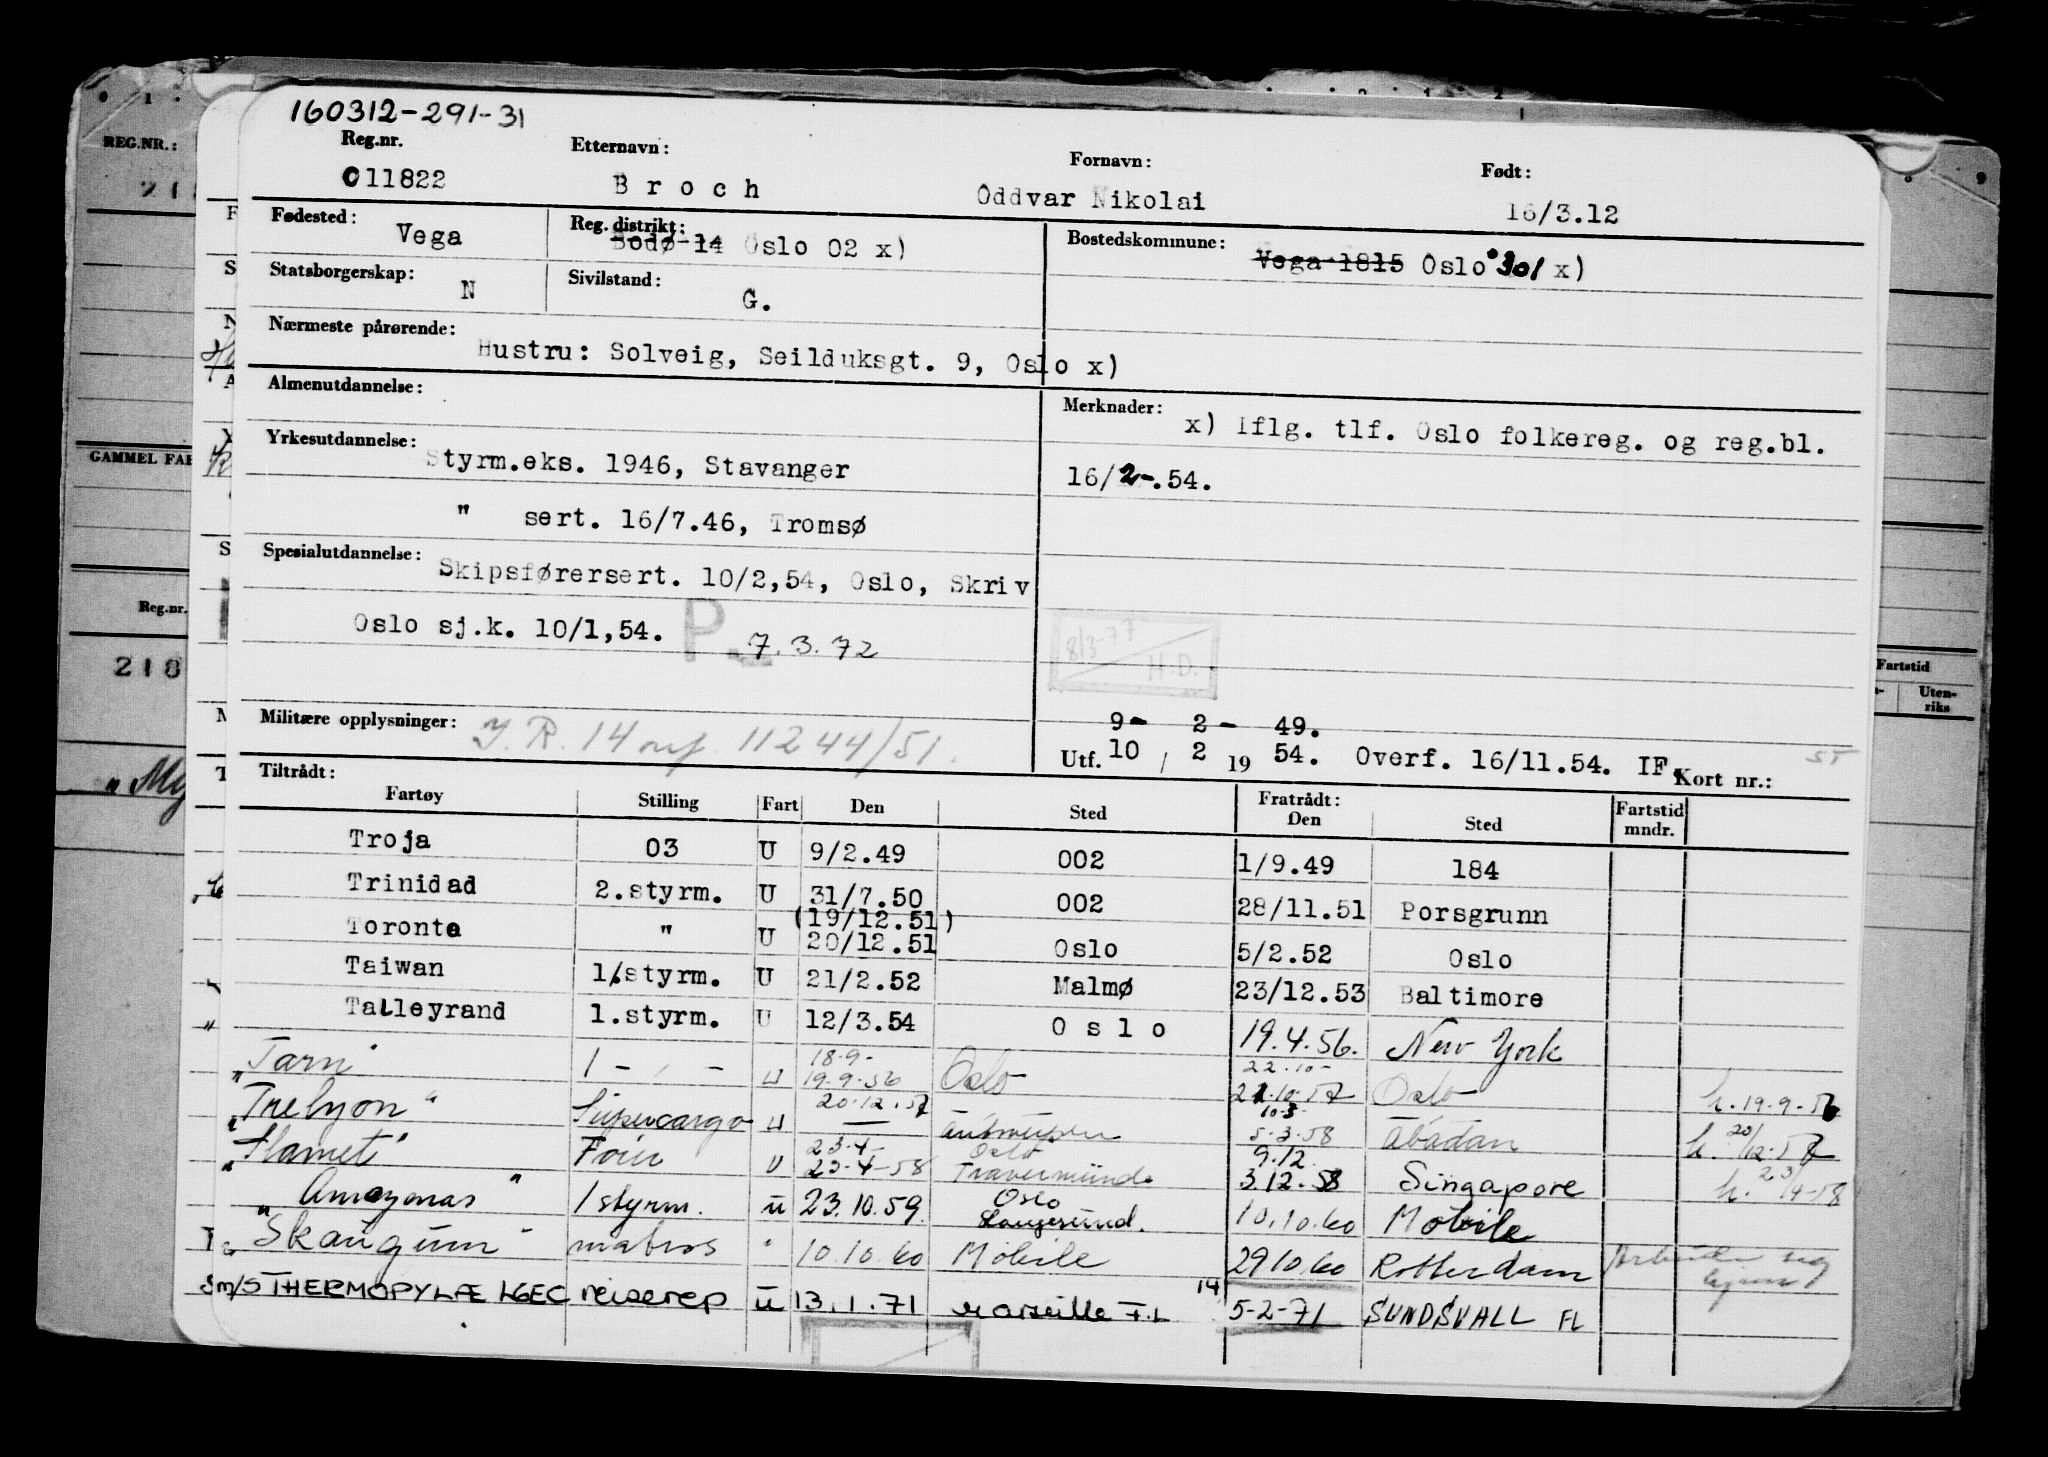 160312-291-31
Reg.nr. Etternavn: Fornavn: Født:
011822 Broch Oddvar Nikolai 16/3.12
Fødested: Vega Reg. distrikt: Bodø 14 Oslo 02 x) Bostedskommune: Vega 1815 Oslo 301 x)
Statsborgerskap: N Sivilstand: G.
Nærmeste pårørende: Hustru: Solveig, Seilduksgt. 9, Oslo x)
Almenutdannelse: Merknader: x) Iflg. tlf. Oslo folkereg. og reg.bl.
Yrkesutdannelse: Styrm.eks. 1946, Stavanger 16/2-.54.
" sert. 16/7.46, Tromsø
Spesialutdannelse: Skipsførersert. 10/2,54, Oslo, Skriv
Oslo sj.k. 10/1,54. P. 7.3.72 8/3-77 H.D.
Militære opplysninger: I.R. 14 11244/51. 9- 2- 49.
Utf. 10 / 2 19 54. Overf. 16/11.54. IF. Kort nr.:
Tiltrådt: Fratrådt:
Fartøy Stilling Fart Den Sted Den Sted Fartstid mndr.
Troja 03 U 9/2.49 002 1/9.49 184
Trinidad 2.styrm. U 31/7.50 002 28/11.51 Porsgrunn
(19/12.51)
Toronto " U 20/12.51 Oslo 5/2.52 Oslo
Taiwan 1.styrm. U 21/2.52 Malmø 23/12.53 Baltimore
Talleyrand 1.styrm. U 12/3.54 Oslo 19.4.56. New York
18.9- 22.10-
"Tarn" 1 - " - U 19.9.56 Oslo 21.10.57 Oslo h. 19.9-56
20.12.57 10.3-
"Trelyon" Supercargo U — Antwerpen 5.3.58 Abadan h. 20/12-57
23.4- Oslo 9.12.
"Slamet" Fører U 23-4-58 Travemünde 3.12.58 Singapore h. 23/4-58
"Amazonas" 1 styrm. u 23.10.59. Oslo Langesund. 10.10.60 Mobile
"Skaugum" matros " 10.10.60 Mobile 29.10.60 Rotterdam Arbeidet seg hjem
m/S THERMOPYLÆ LGEC reiserep u 13.1.71 Marseille F.L 14 5-2-71 SUNDSVALL FL
REG.NR.:
GAMMEL FAR
Reg.nr.
218
"My
Fartstid
Uten-
riks